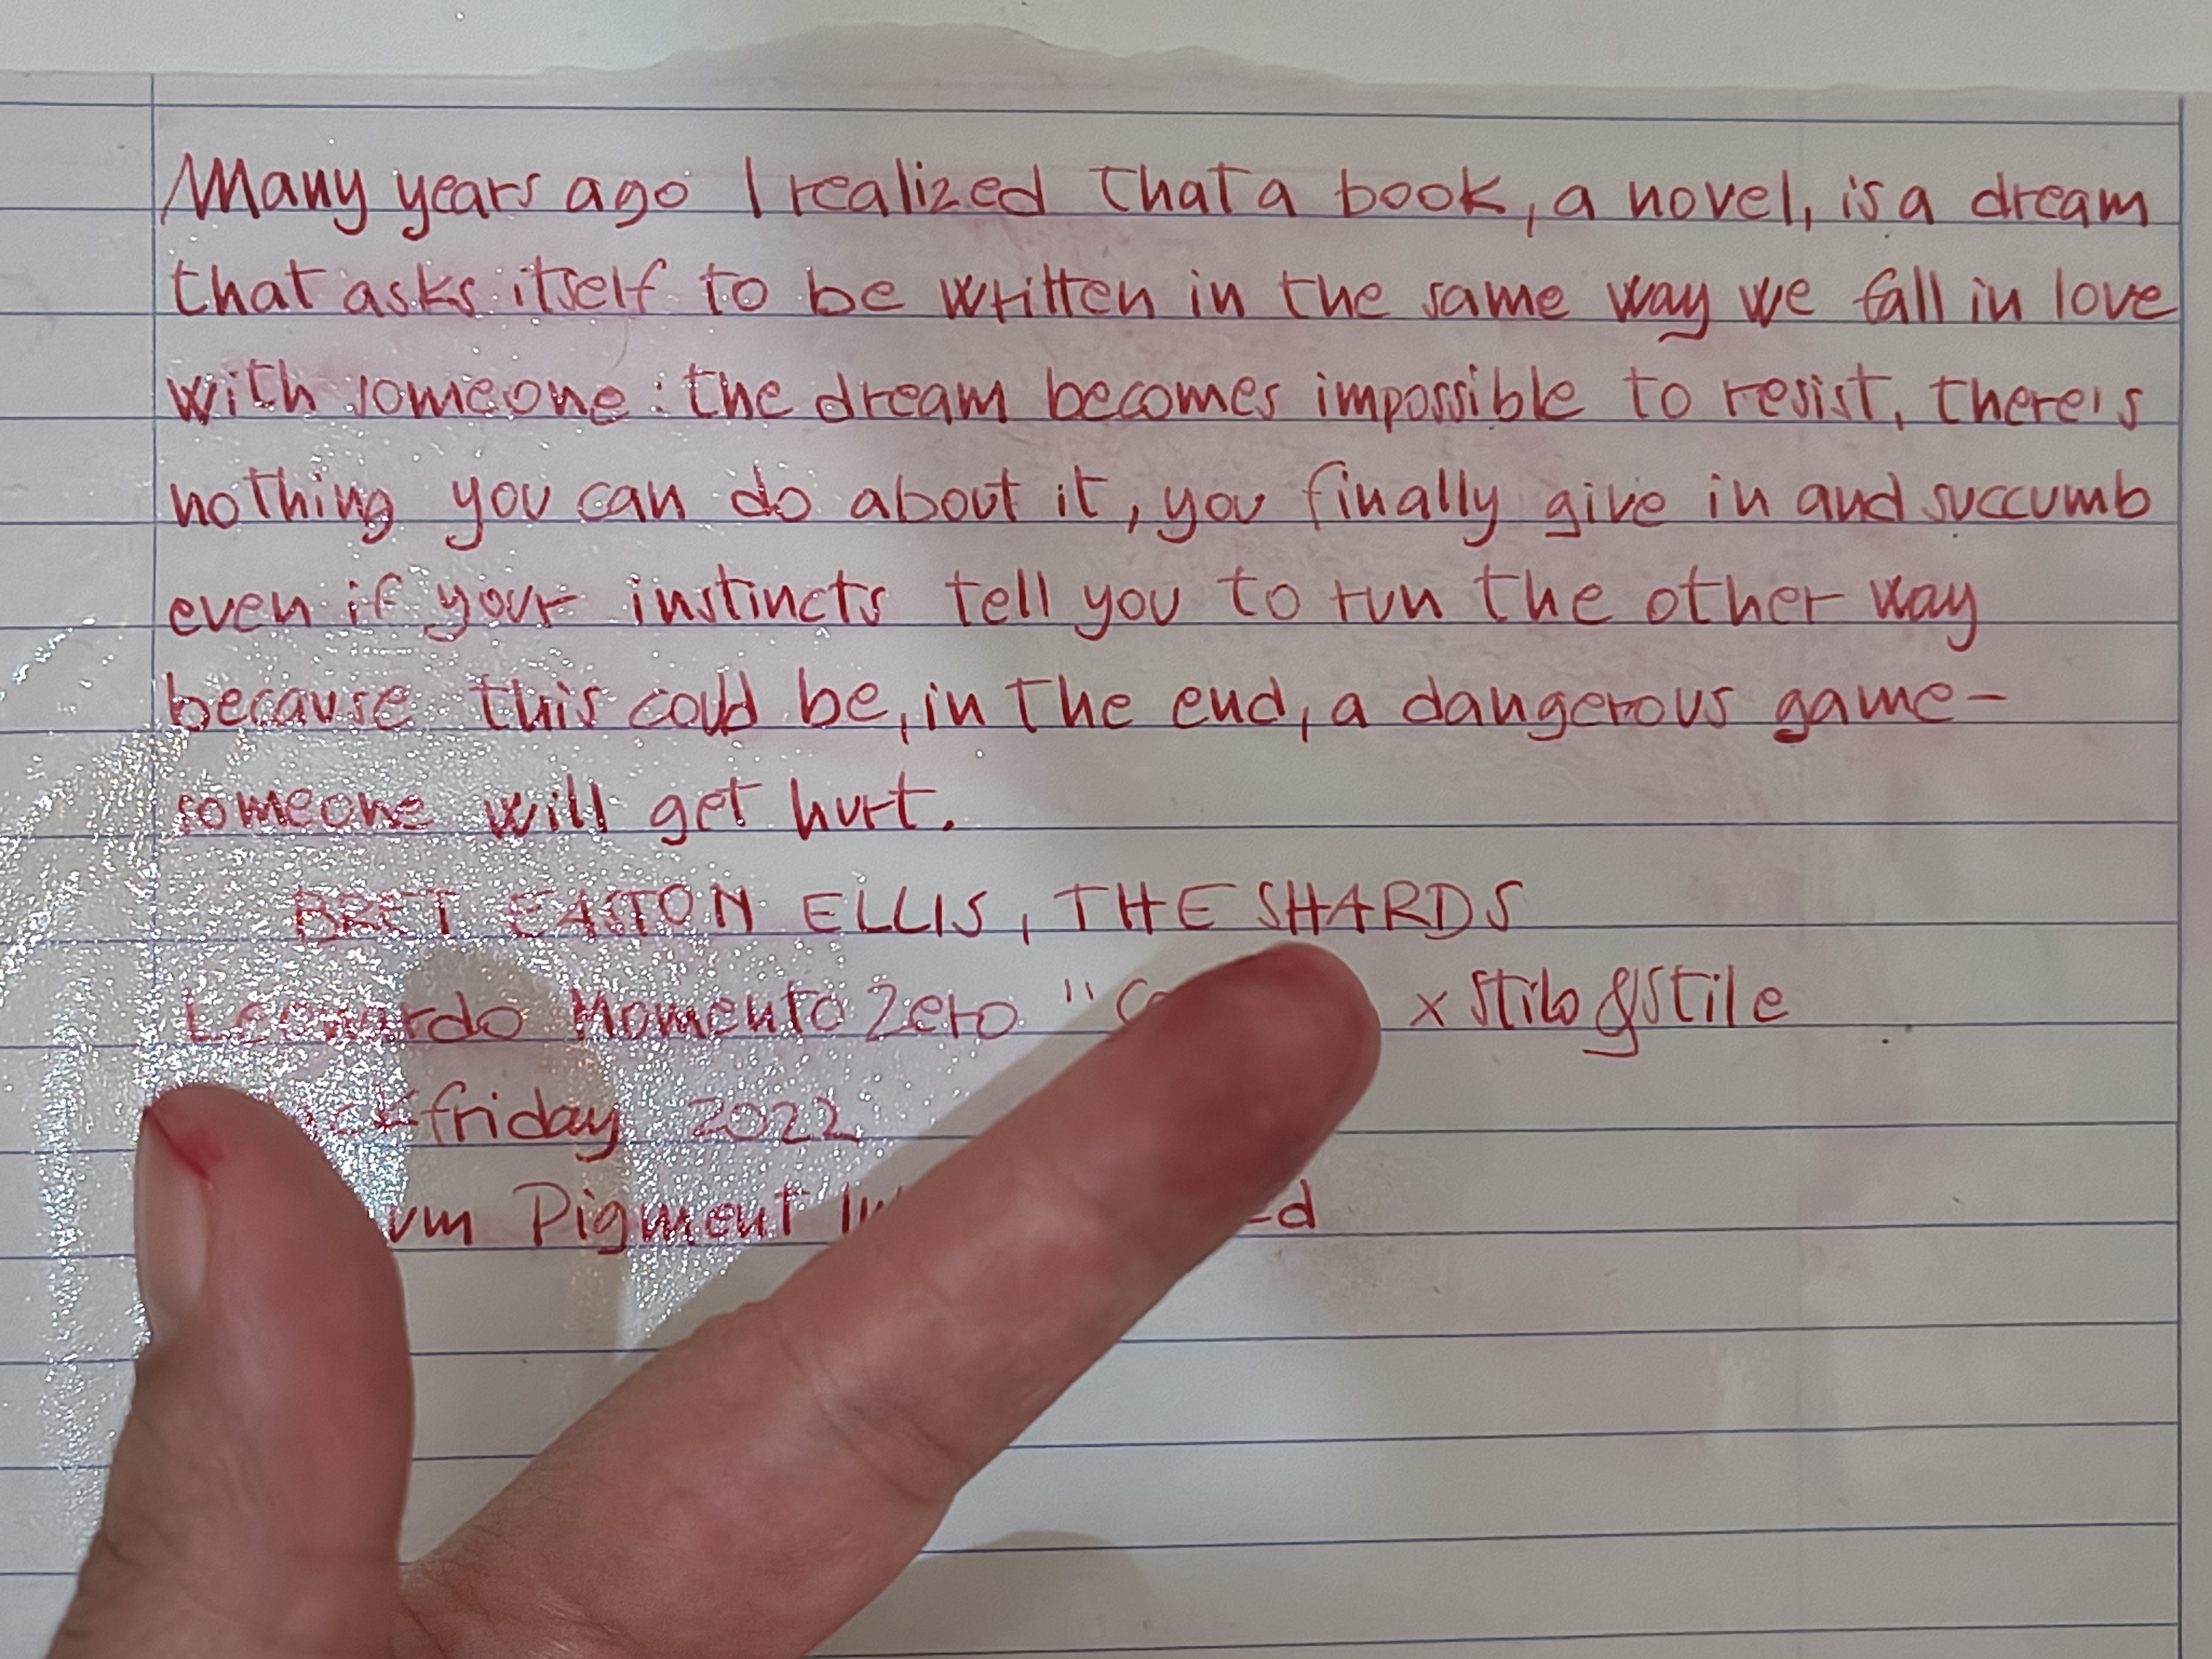 Many years ago I realized that a book, a novel, is a dream
that asks itself to be written in the same way we fall in love
with someone: the dream becomes impossible to resist, there's
nothing you can do about it, you finally give in and succumb
even if your instincts tell you to run the other way
because this could be, in the end, a dangerous game–
someone will get hurt.
BRET EASTON ELLIS, THE SHARDS
Leonardo Momento Zero x Stilo&Stile
friday 2022
Pigment